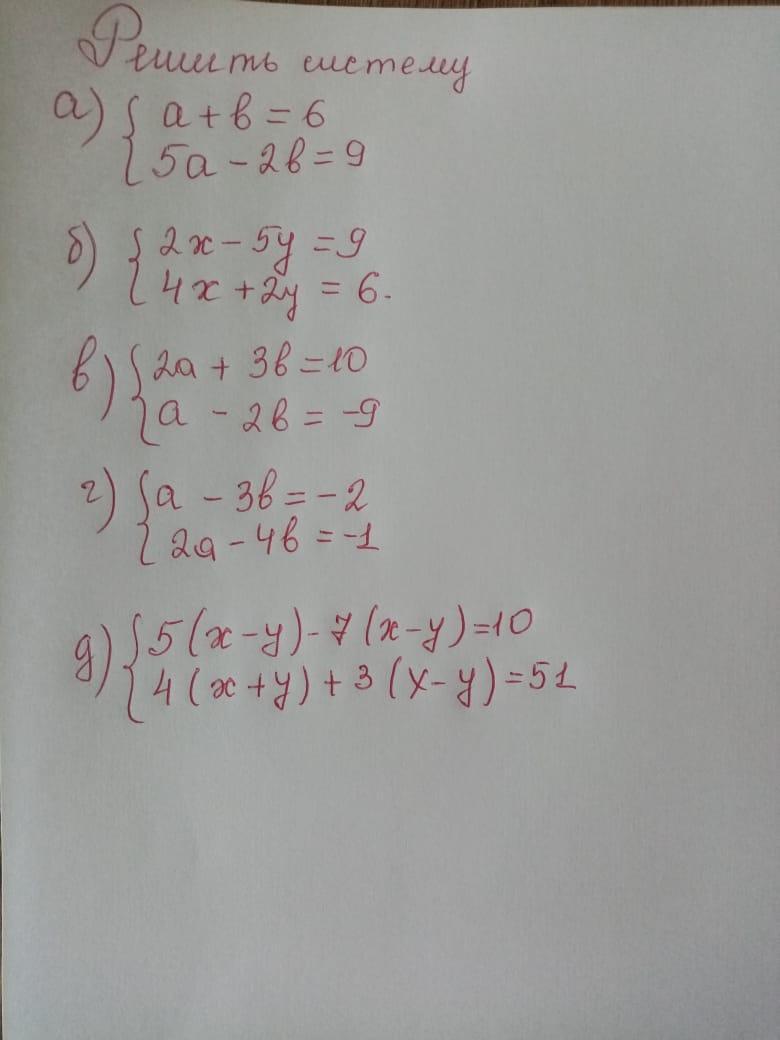 Решить систему
а) { a + b = 6
5a - 2b = 9
б) { 2x - 5y = 9
4x + 2y = 6.
в) { 2a + 3b = 10
a - 2b = -9
г) { a - 3b = -2
2a - 4b = -1
д) { 5(x-y) - 7(x-y) = 10
4(x+y) + 3(x-y) = 51